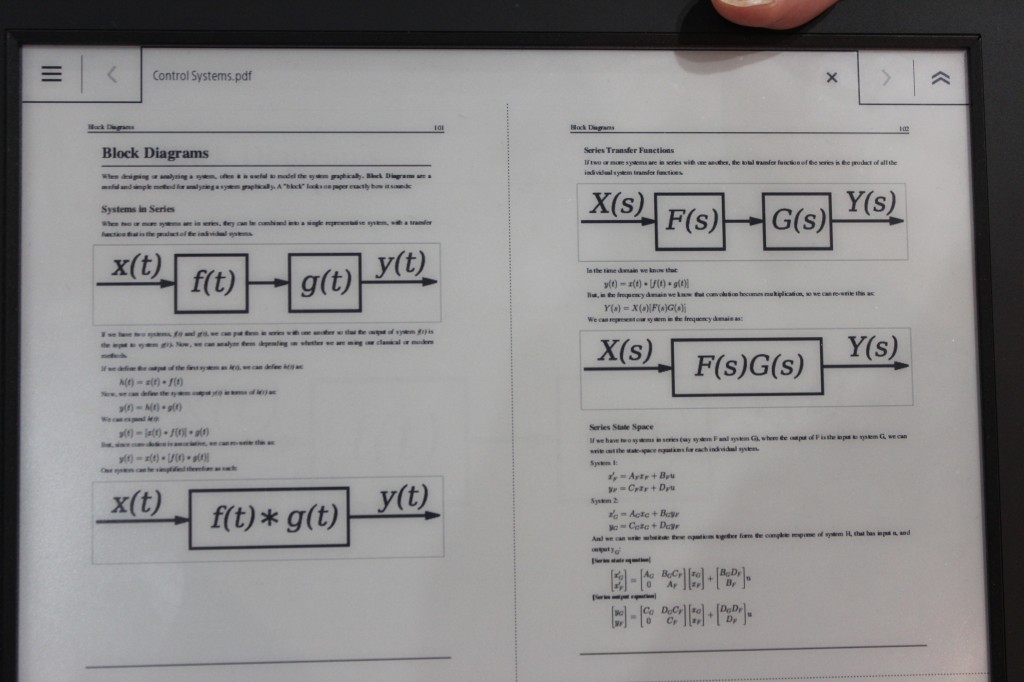 Control Systems.pdf
Block Diagrams 101
Block Diagrams
When designing or analyzing a system, often it is useful to model the system graphically. Block Diagrams are a
useful and simple method for analyzing a system graphically. A "block" looks on paper exactly how it sounds:
Systems in Series
When two or more systems are in series, they can be combined into a single representative system, with a transfer
function that is the product of the individual systems.
x(t) f(t) g(t) y(t)
If we have two systems, f(t) and g(t), we can put them in series with one another so that the output of system f(t) is
the input to system g(t). Now, we can analyze them depending on whether we are using our classical or modern
methods.
If we define the output of the first system as h(t), we can define h(t) as:
h(t) = x(t) * f(t)
Now, we can define the system output y(t) in terms of h(t) as:
y(t) = h(t) * g(t)
We can expand h(t):
y(t) = [x(t) * f(t)] * g(t)
But, since convolution is associative, we can re-write this as:
y(t) = x(t) * [f(t) * g(t)]
Our system can be simplified therefore as such:
x(t) f(t) * g(t) y(t)
Block Diagrams 102
Series Transfer Functions
If two or more systems are in series with one another, the total transfer function of the series is the product of all the
individual system transfer functions.
X(s) F(s) G(s) Y(s)
In the time domain we know that:
y(t) = x(t) * [f(t) * g(t)]
But, in the frequency domain we know that convolution becomes multiplication, so we can re-write this as:
Y(s) = X(s)[F(s)G(s)]
We can represent our system in the frequency domain as:
X(s) F(s)G(s) Y(s)
Series State Space
If we have two systems in series (say system F and system G), where the output of F is the input to system G, we can
write out the state-space equations for each individual system.
System 1:
x′F = AFxF + BFu
yF = CFxF + DFu
System 2:
x′G = AGxG + BGyF
yG = CGxG + DGyF
And we can write substitute these equations together form the complete response of system H, that has input u, and
output yG:
[Series state equation]
[x′G] = [AG BGCF] [xG] + [BGDF] u
[x′F] [0 AF] [xF] [BF]
[Series output equation]
[yG] = [CG DGCF] [xG] + [DGDF] u
[yF] [0 CF] [xF] [DF]